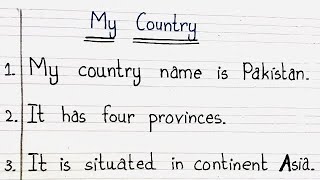 My Country
1. My country name is Pakistan.
2. It has four provinces.
3. It is situated in continent Asia.